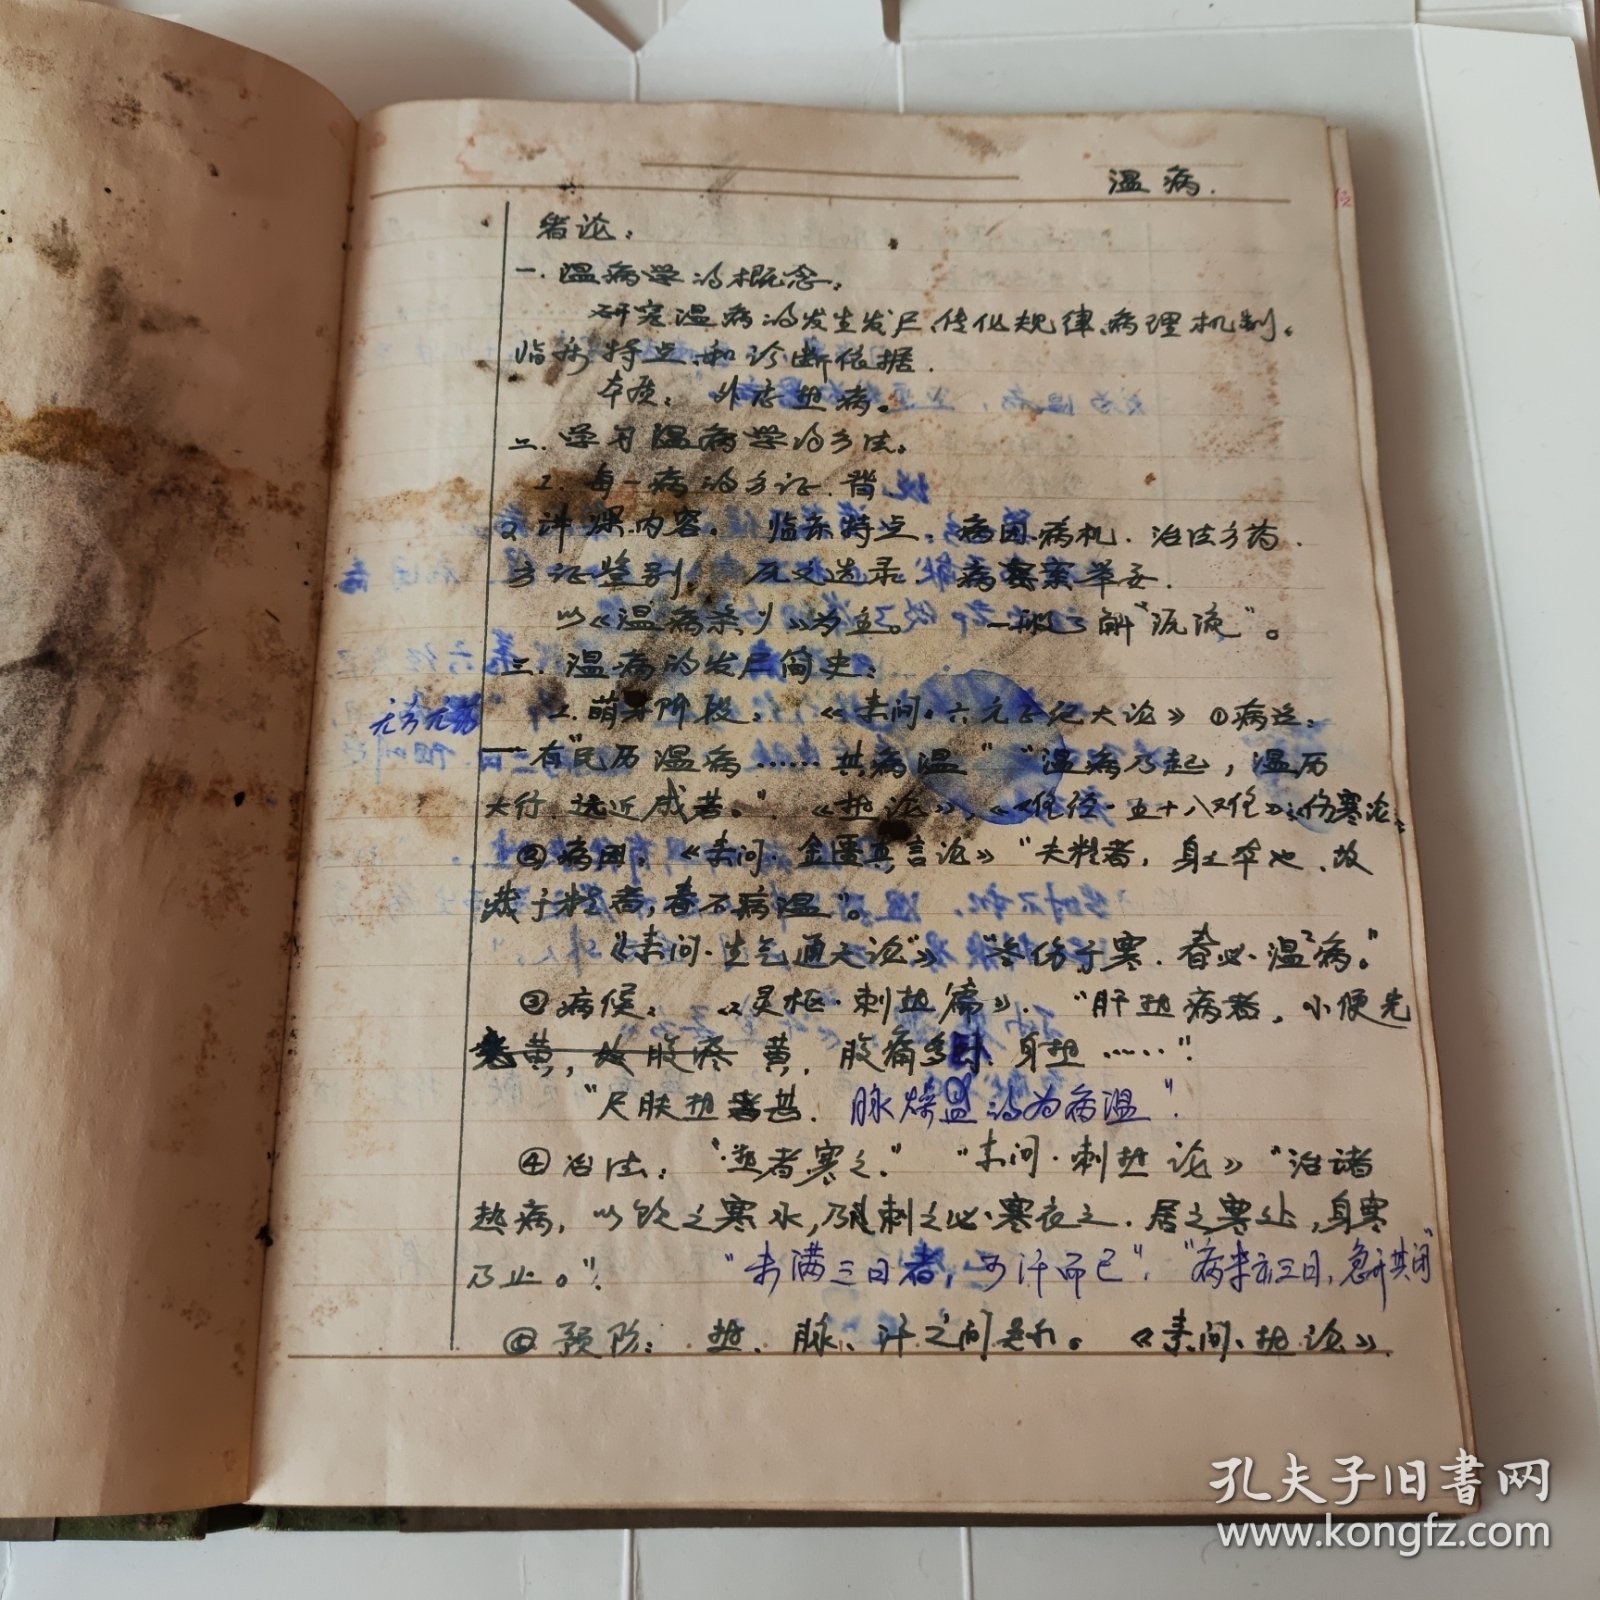 温病.
绪论:
一.温病学的概念.
研究温病的发生发尸、传化规律、病理机制、
临床特点和诊断依据.
本质: 外感热病。
二.学习温病学的方法.
1. 每一病的方证.背
2 讲课内容. 临床特点、病因病机.治法方药.
方证鉴别. 原文选录 病案举
以《温病条》为主。 一般了解"源流"。
三.温病的发尸简史:
无方无药
1.萌芽阶段: 《素问·六元正纪大论》①病证:
有"民厉温病……其病温" "温病乃起,温厉
大行.远近咸若。".《热论》、《难经·五十八难》:伤寒论:
②病因:《素问·金匮真言论》"夫精者,身之本也.故
藏于精者,春不病温"。
《素问·生气通天论》"冬伤于寒.春必温病。"
③病候: 《灵枢·刺热篇》."肝热病者,小便先
黄,腹痛多卧.身热……".
"尺肤热甚. 脉燥盛的为病温".
④治法:"热者寒之." "素问·刺热论》"治诸
热病,以饮之寒水,乃刺之必寒衣之.居之寒处,身寒
乃止。". "未满三日者,可汗而已"."病未三日,急开其闭"
⑤预防: 热、脉、汗之间是. 《素问、热论》.
孔夫子旧书网
www.kongfz.com